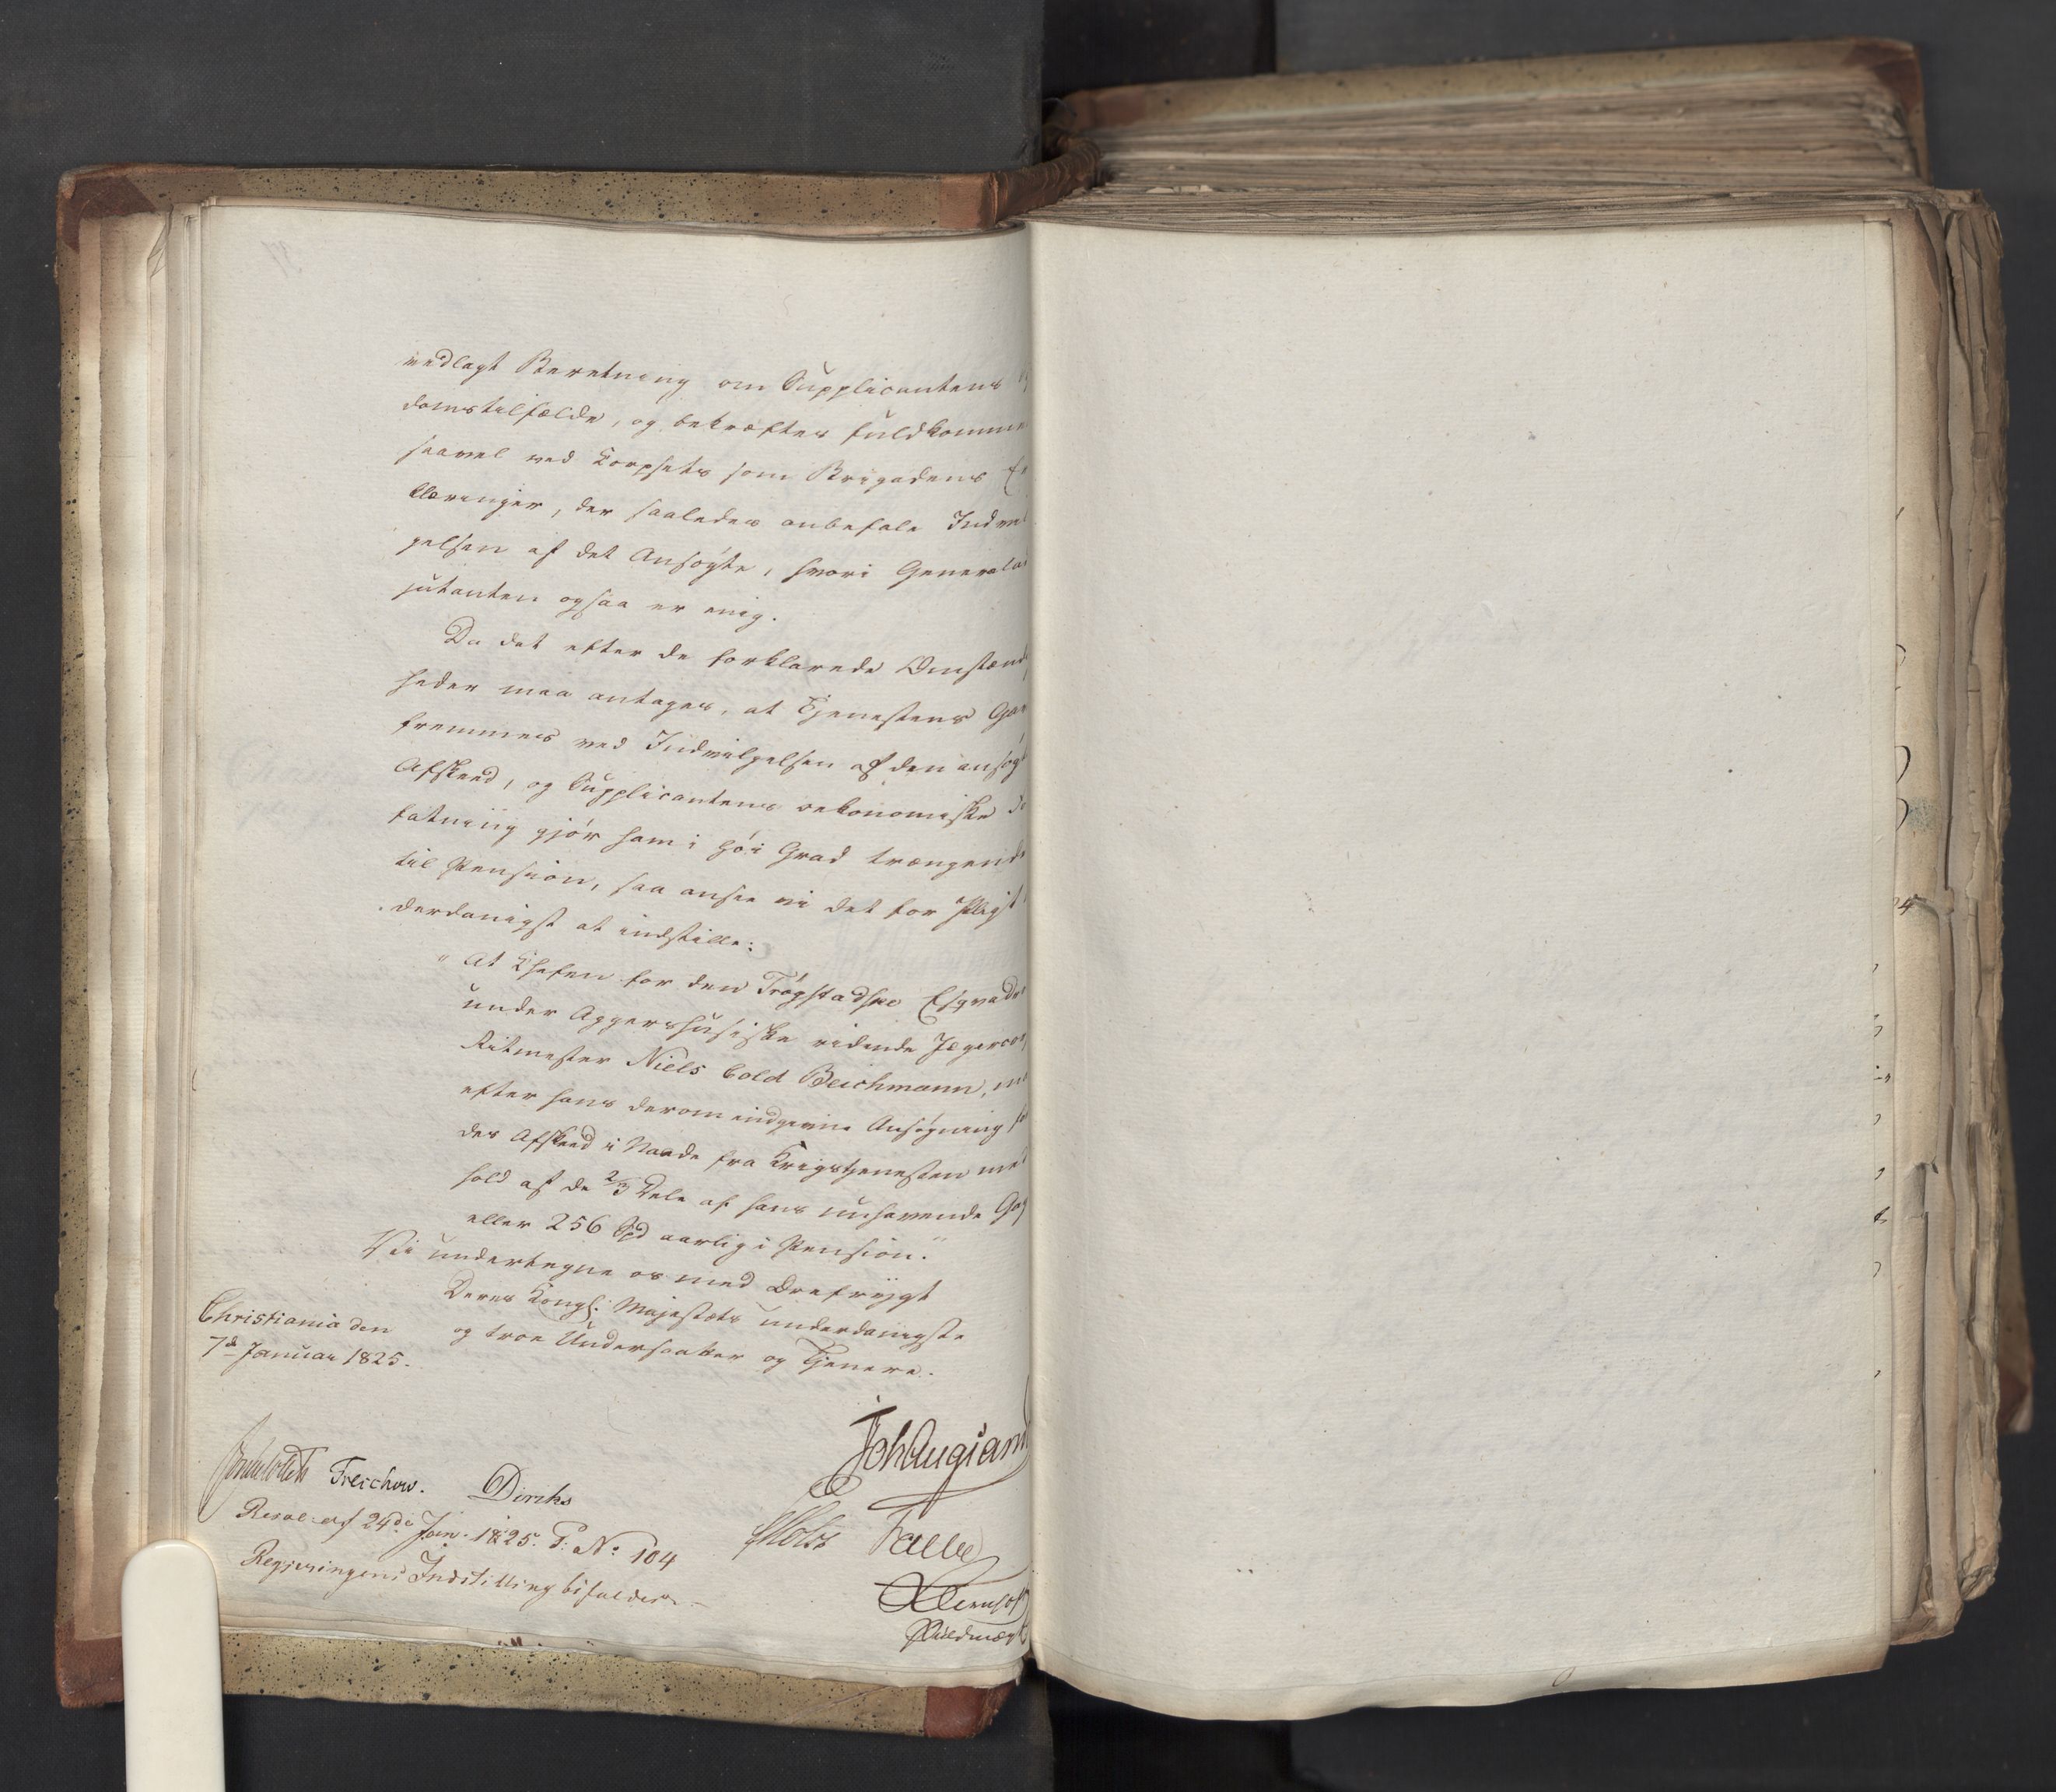 vedlagt Beretning om Supplicantens
domstilfælde, og bekræftes fuldkomme
saavel ved Korpsets som Brigadens Er
klæringer, der saaledes anbefale Indvil
gelsen af det Ansøgte, hvori Generalad
jutanten ogsaa er enig.
Da det efter de forklarede Omstænd
heder maa antages, at Tjenestens Gavn
fremmes ved Indvilgelsen af den ansøgt
Afskeed, og Supplicantens oekonomiske
fatning gjør ham i høi Grad trængende
til Pension, saa ansee vi det for Pligt
derdanigst at indstille:
" At Chefen for den Trøgstadske Esqvadr
under Aggershusiske ridende Jægercor
Ritmester Niels Cold Beichmann, m
efter hans derom indgivne Ansøgning
des Afskeed i Naade fra Krigstjenesten med
hold af de 2/3 Dele af hans innehavende Gag
eller 256 Spd aarlig i Pension."
Vi undertegne os med Ærefrygt
Deres Kongl. Majestæts underdanigste
og troe Undersaatter og Tjenere.
Christiania den
7de Januar 1825.
Treschow. Diriks
Resol: af 24de Jan. 1825. P: No 104
Regjeringens Indstilling bifaldes.
Motz Falbe